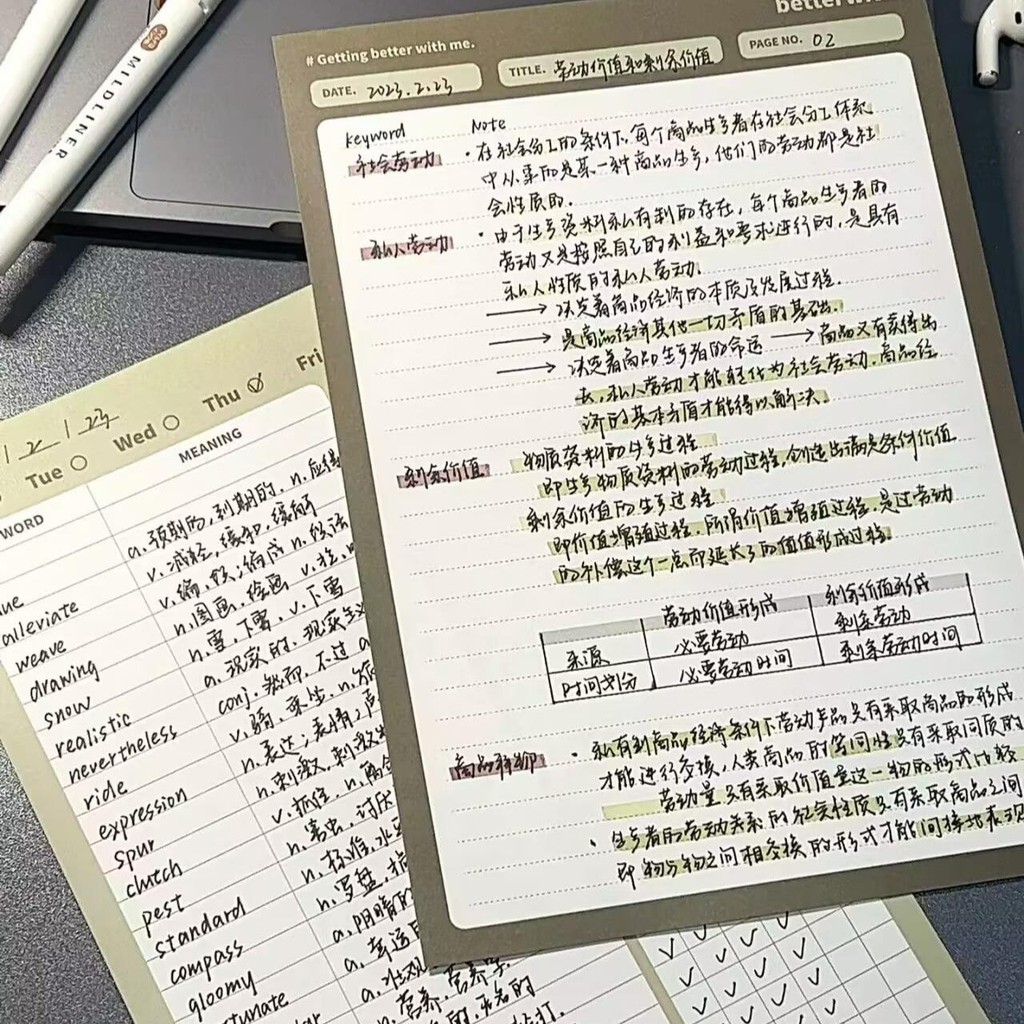 MILDLINER
# Getting better with me.
better
DATE. 2023.2.23
TITLE. 劳动价值和剩余价值
PAGE NO. 02
keyword Note
社会劳动 · 在社会分工的条件下,每个商品生产者在社会分工体系
中从事的是某一种商品生产,他们的劳动都是社
会性质的.
私人劳动 · 由于生产资料私有制的存在,每个商品生产者的
劳动又是按照自己的利益和要求进行的,是具有
私人性质的私人劳动.
→ 决定着商品经济的本质及发展过程.
→ 是商品经济其他一切矛盾的基础.
→ 决定着商品生产者的命运 → 商品又有卖得出
去,私人劳动才能转化为社会劳动.商品经
济的基本矛盾才能得以解决.
剩余价值 物质资料的生产过程
即生产物质资料的劳动过程,创造出满足条何价值
剩余价值的生产过程
即价值增殖过程.所谓价值增殖过程.是过劳动
的补偿这个一点而延长了的值值形成过程.
劳动价值形成 剩余价值形成
来源 必要劳动 剩余劳动
时间划分 必要劳动时间 剩余劳动时间
商品拜物 · 私有制商品经济条件下劳动产品只有采取商品的形式
才能进行交换,人类商品的等同性只有采取同质的
劳动量只有采取价值量这一物的形式比较
· 生产者的劳动关系的社会性质只有采取商品之间
即物与物之间相交换的形式才能间接地表现
/ 2 / 23
Tue Wed Thu Fri
WORD MEANING
ue a.预期的,到期的,n.应得
alleviate v.减轻,缓和,缓解
weave v.编,织;编成 n.织法
drawing n.图画,绘画 v.拉,
snow n.雪,下雪,v.下雪
realistic a.现实的,现实主义
nevertheless conj.然而,不过 a
ride v.骑,乘坐,n.
expression n.表达;表情;声
spur n.刺激,刺激物
clutch v.抓住,n.离合
pest n.害虫,讨厌
standard n.标准,水
compass n.罗盘,指
gloomy a.阴暗的
tunate a.幸运
a.壮观
n.营养,营养学